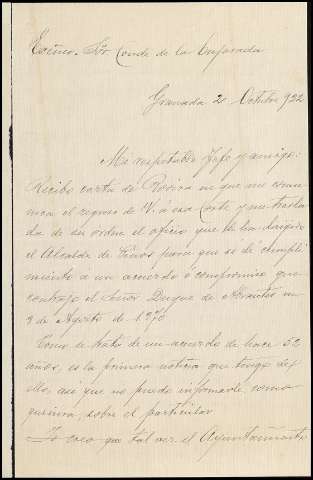 Excmo. Sor Conde de la Enjarada
Granada 20 Octubre 922
Mi respetable Jefe y amigo:
Recibo carta de en que me comu-
nica el regreso de V. á esa Corte y me trasla-
da de su orden el oficio que le ha dirigido
el Alcalde de para que se dé cumpli-
miento á un acuerdo ó compromiso que
contrajo el Señor Duque de Abrantes en
3 de Agosto de 1.870
Como se trata de un acuerdo de hace 52
años, es la primera noticia que tengo de
ello, así que no puedo informarle, como
quisiera, sobre el particular
Yo creo que tal vez el Ayuntamiento